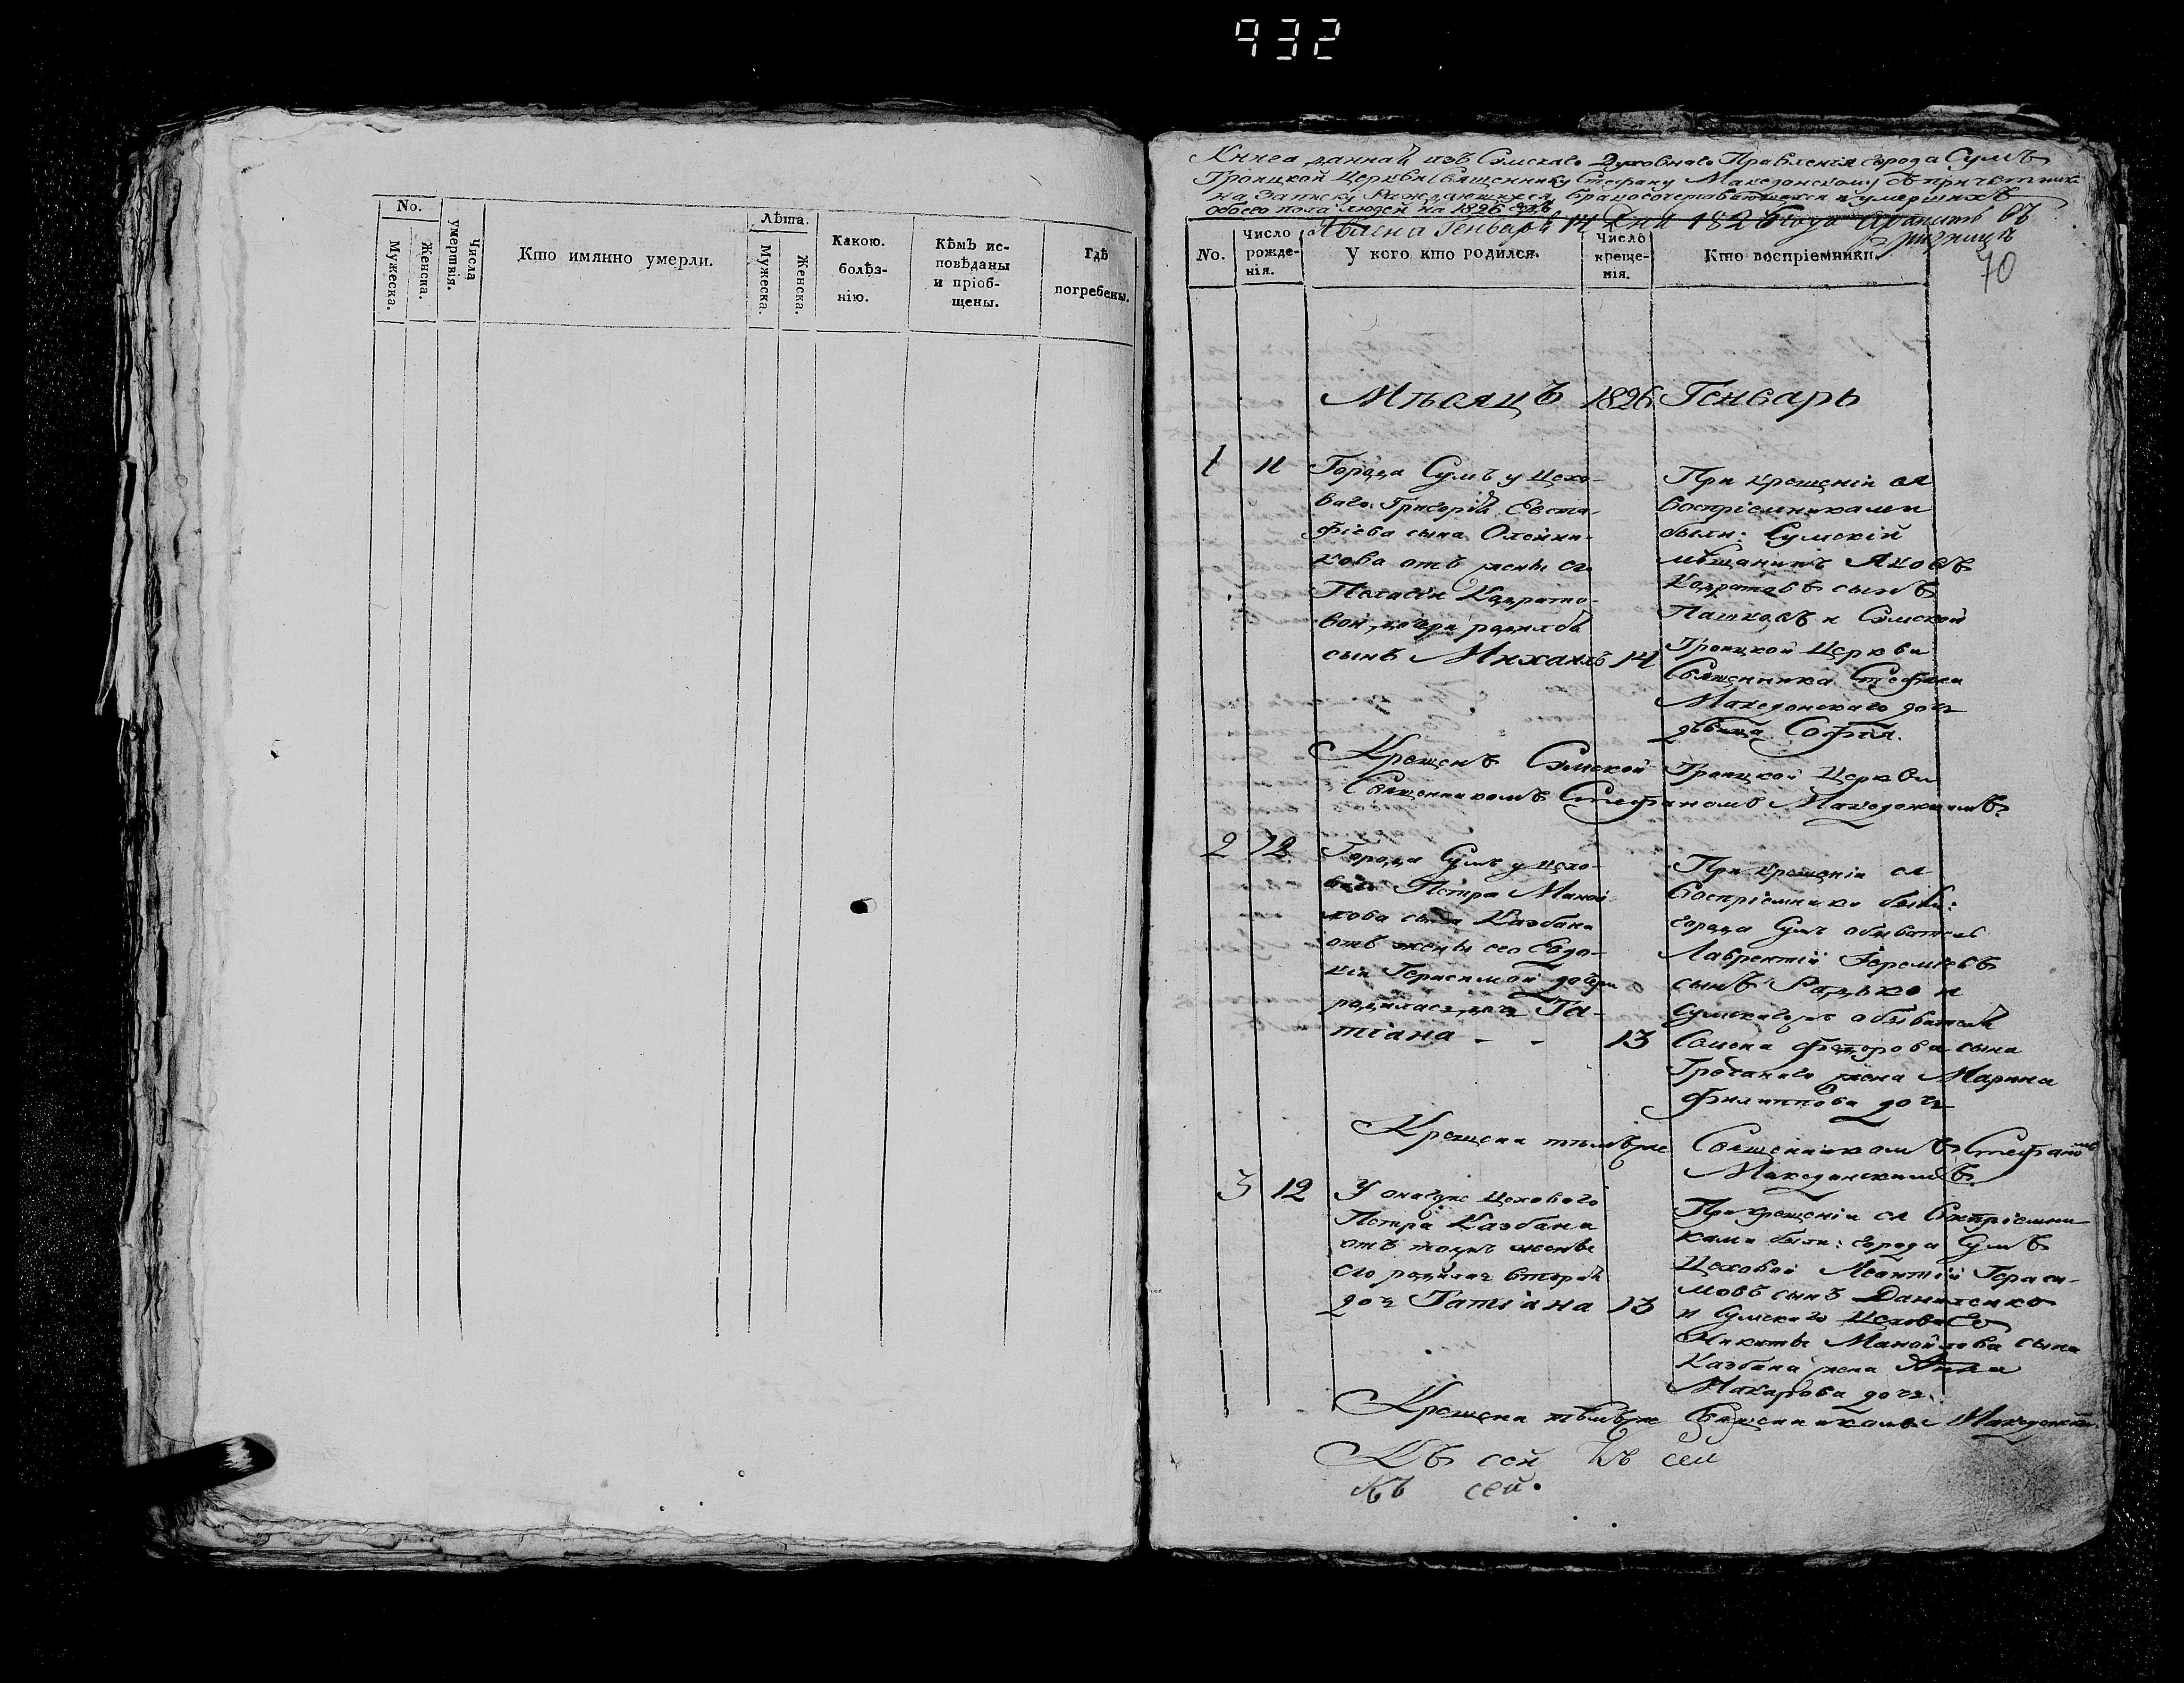 932
No.
Мужеска.
Женска.
Числа умертвія.
Кто имянно умерли.
Лѣта.
Мужеска.
Женска.
Какою.
болѣз-
нію.
Кѣмъ ис-
повѣданы
и пріоб-
щены.
Гдѣ
погребены.
Книга данная изъ Сумскаго Духовнаго Правленія города Сумъ
Троицкой Церкви священнику Стефану Македонскому съ причетники
на записку раждающихся, бракосочетовающихся и умершихъ
обоего пола людей на 1826 годъ
Генваря 14 дня 1826 года хранить въ
ризницѣ
70
No.
Число
рожде-
нія.
У кого кто родился.
Число
креще-
нія.
Кто воспріемники.
Мѣсяцъ 1826 Генварь
1 11 Города Сумъ у цехо-
ваго Григорія Евста-
фіева сына Олейни-
кова отъ жены его
Пелагіи Кодрато-
вой дочери родился
сынъ Михаилъ 14
При крещеніи ея
воспріемниками
были: Сумскій
мѣщанинъ Яковъ
Кодратовъ сынъ
Пашковъ и Сумской
Троицкой Церкви
Священника Стефана
Македонскаго дочь
дѣвица Софія.
Крещенъ Сумской Троицкой Церкви
Священникомъ Стефаномъ Македонскимъ.
2 12 Города Сумъ у цехо-
ваго Петра Маной-
лова сына Казбана
отъ жены его Евдо-
кіи Герасимой дочери
родилась дочь Та-
тіана - - 13
При крещеніи ея
воспріемники были:
города Сумъ обыватель
Лаврентій Іереміевъ
сынъ Радько и
Сумскаго обывателя
Семена Федорова сына
Гречанаго жена Марина
Филиппова дочь
Крещена тѣмъ же Священникомъ Стефаномъ
Македонскимъ.
3 12 У онаго же цеховаго
Петра Казбана
отъ той же жены
его родилась вторая
дочь Татіана 13
При крещеніи ея воспріемни-
ками были: города Сумъ
Цеховой Леонтій Гераси-
мовъ сынъ Даниленко
и Сумскаго цеховаго
Никиты Манойлова сына
Казбана жена Анна
Макарова дочь.
Крещена тѣмъ же Священникомъ Македонскимъ.
Къ сей Къ сей
Къ сей.